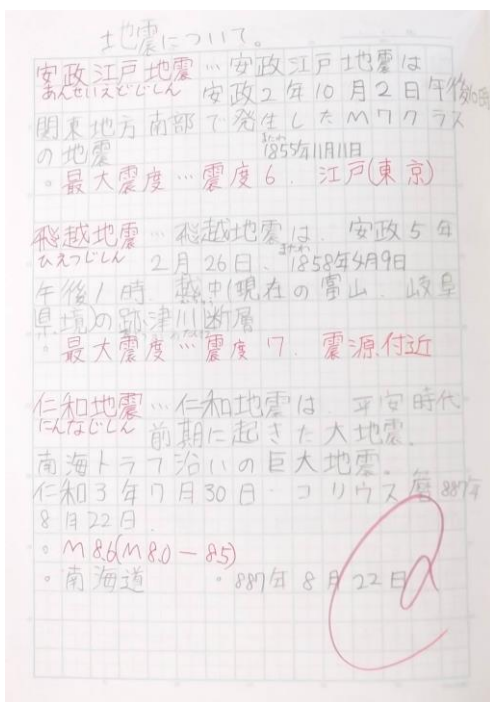 地震について。
安政江戸地震…安政江戸地震は
あんせいえどじしん 安政2年10月2日午後10時
関東地方南部で発生したM7クラス
の地震 または 1855年11月11日
。最大震度…震度6. 江戸(東京)
飛越地震…飛越地震は、安政5年
ひえつじしん 2月26日、または 1858年4月9日
午後1時 越中(現在の富山、岐阜
県境)の跡津川断層
。最大震度…震度7. 震源付近
仁和地震…仁和地震は、平安時代
にんなじしん 前期に起きた大地震.
南海トラフ沿いの巨大地震.
仁和3年7月30日・コリウス暦887年
8月22日.
。M8.6(M8.0-8.5)
。南海道 ・887年8月22日